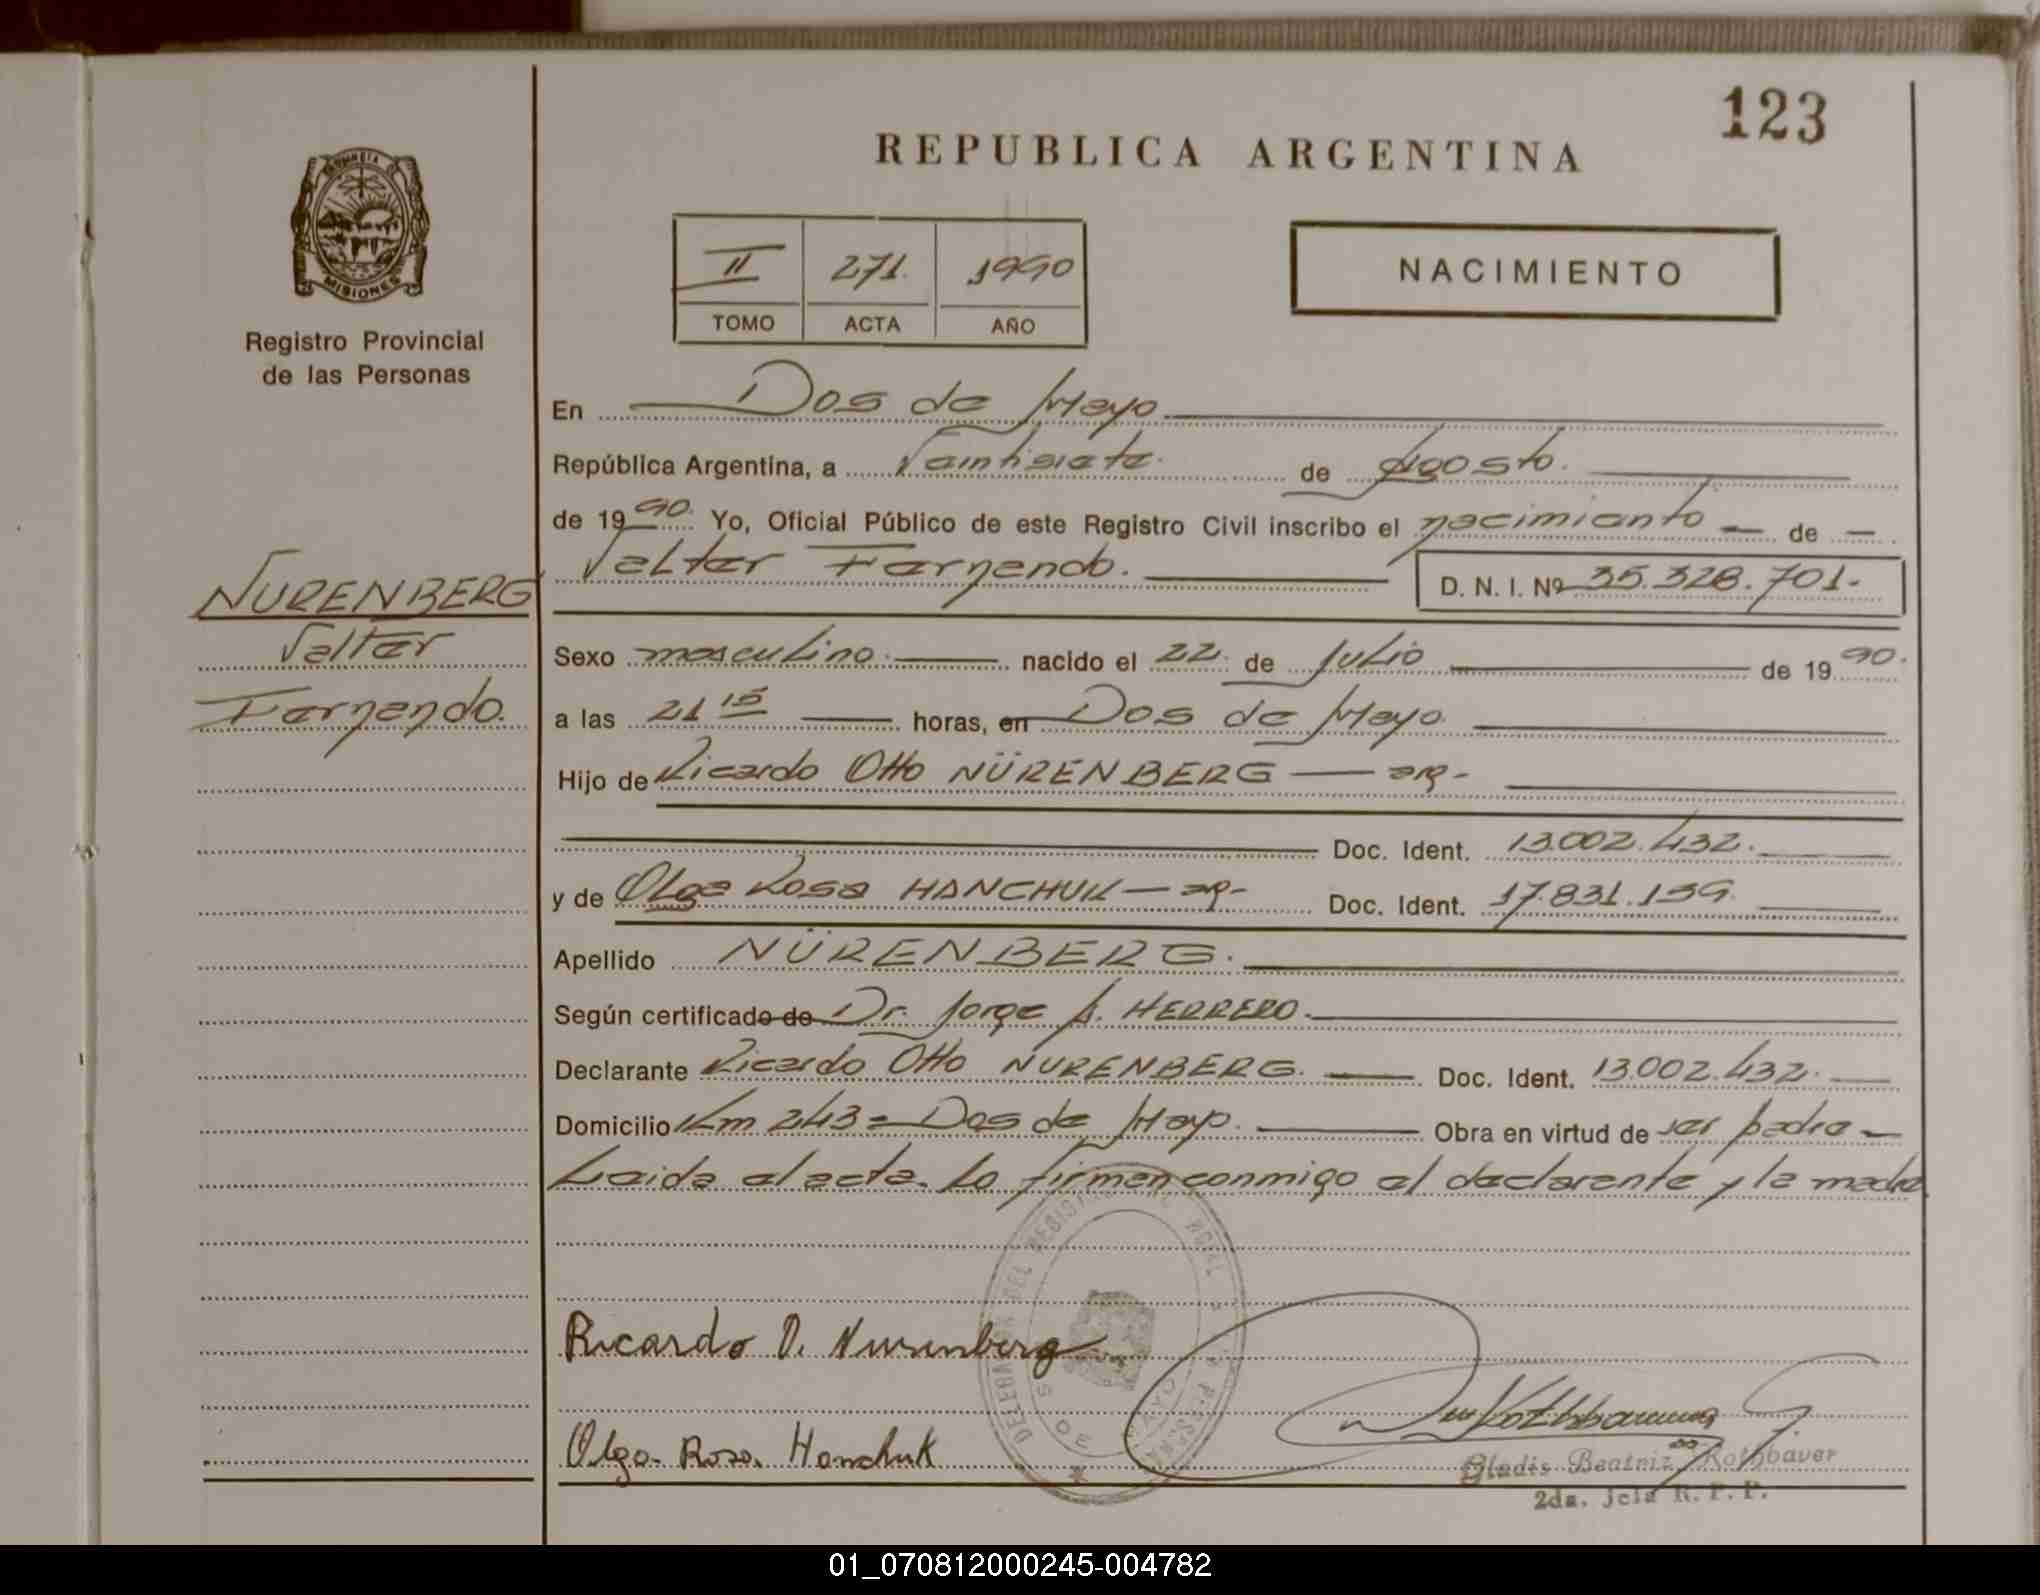 123
REPUBLICA ARGENTINA
MISIONES
Registro Provincial
de las Personas
II 271. 1990
TOMO ACTA AÑO
NACIMIENTO
En Dos de Mayo
República Argentina, a Veintisiete. de Agosto.
de 1990. Yo, Oficial Público de este Registro Civil inscribo el nacimiento — de —
Valter Fernando. D. N. I. Nº 35.328.701.-
NURENBERG
Valter
Fernando.
Sexo masculino. nacido el 22. de Julio de 1990.
a las 21 15 horas, en Dos de Mayo.
Hijo de Ricardo Otto NÜRENBERG — arg-
Doc. Ident. 13.002.432.
y de Olga Rosa HANCHUK — arg- Doc. Ident. 17.831.159.
Apellido NÜRENBERG.
Según certificado de Dr. Jorge A. HERRERO.
Declarante Ricardo Otto NURENBERG. Doc. Ident. 13.002.432.
Domicilio Km 243 = Dos de Mayo. Obra en virtud de ser padre —
Leida el acta. La firman conmigo el declarante y la madre
Ricardo O. Nurenberg
Olga Rosa Hanchuk
Gladis Beatriz Rothbauer
2da. Jefa R. P. P.
01_070812000245-004782